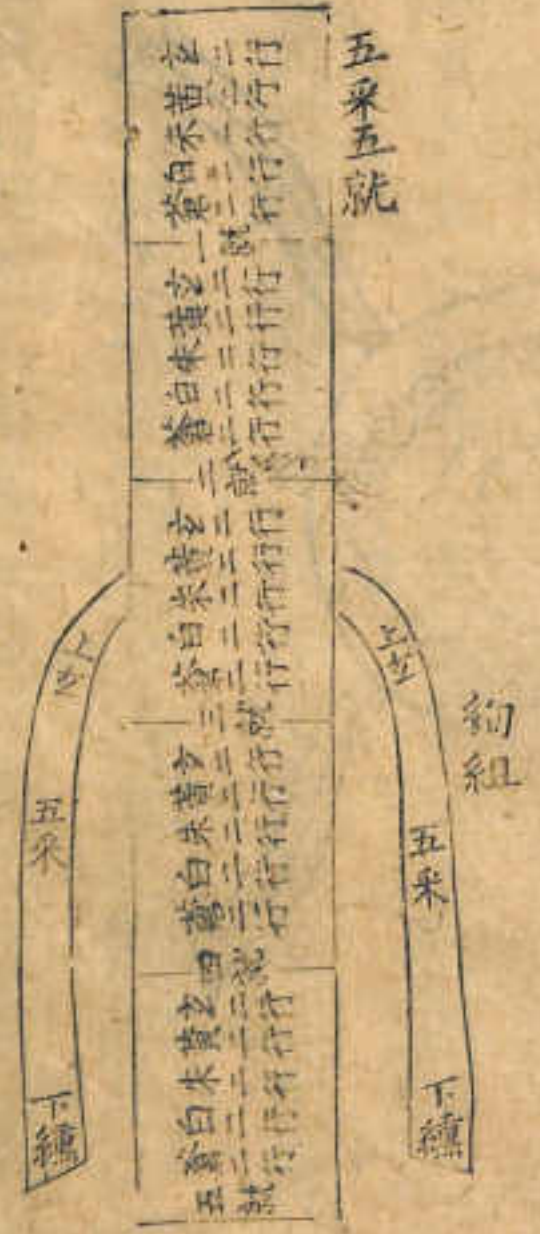 五采五就
玄二行
黃二行
朱二行
白二行
蒼二行
一就
玄二行
黃二行
朱二行
白二行
蒼二行
二就
玄二行
黃二行
朱二行
白二行
蒼二行
三就
玄二行
黃二行
朱二行
白二行
蒼二行
四就
玄二行
黃二行
朱二行
白二行
蒼二行
五就
絢組
上玄
五采
下纁
上玄
五采
下纁